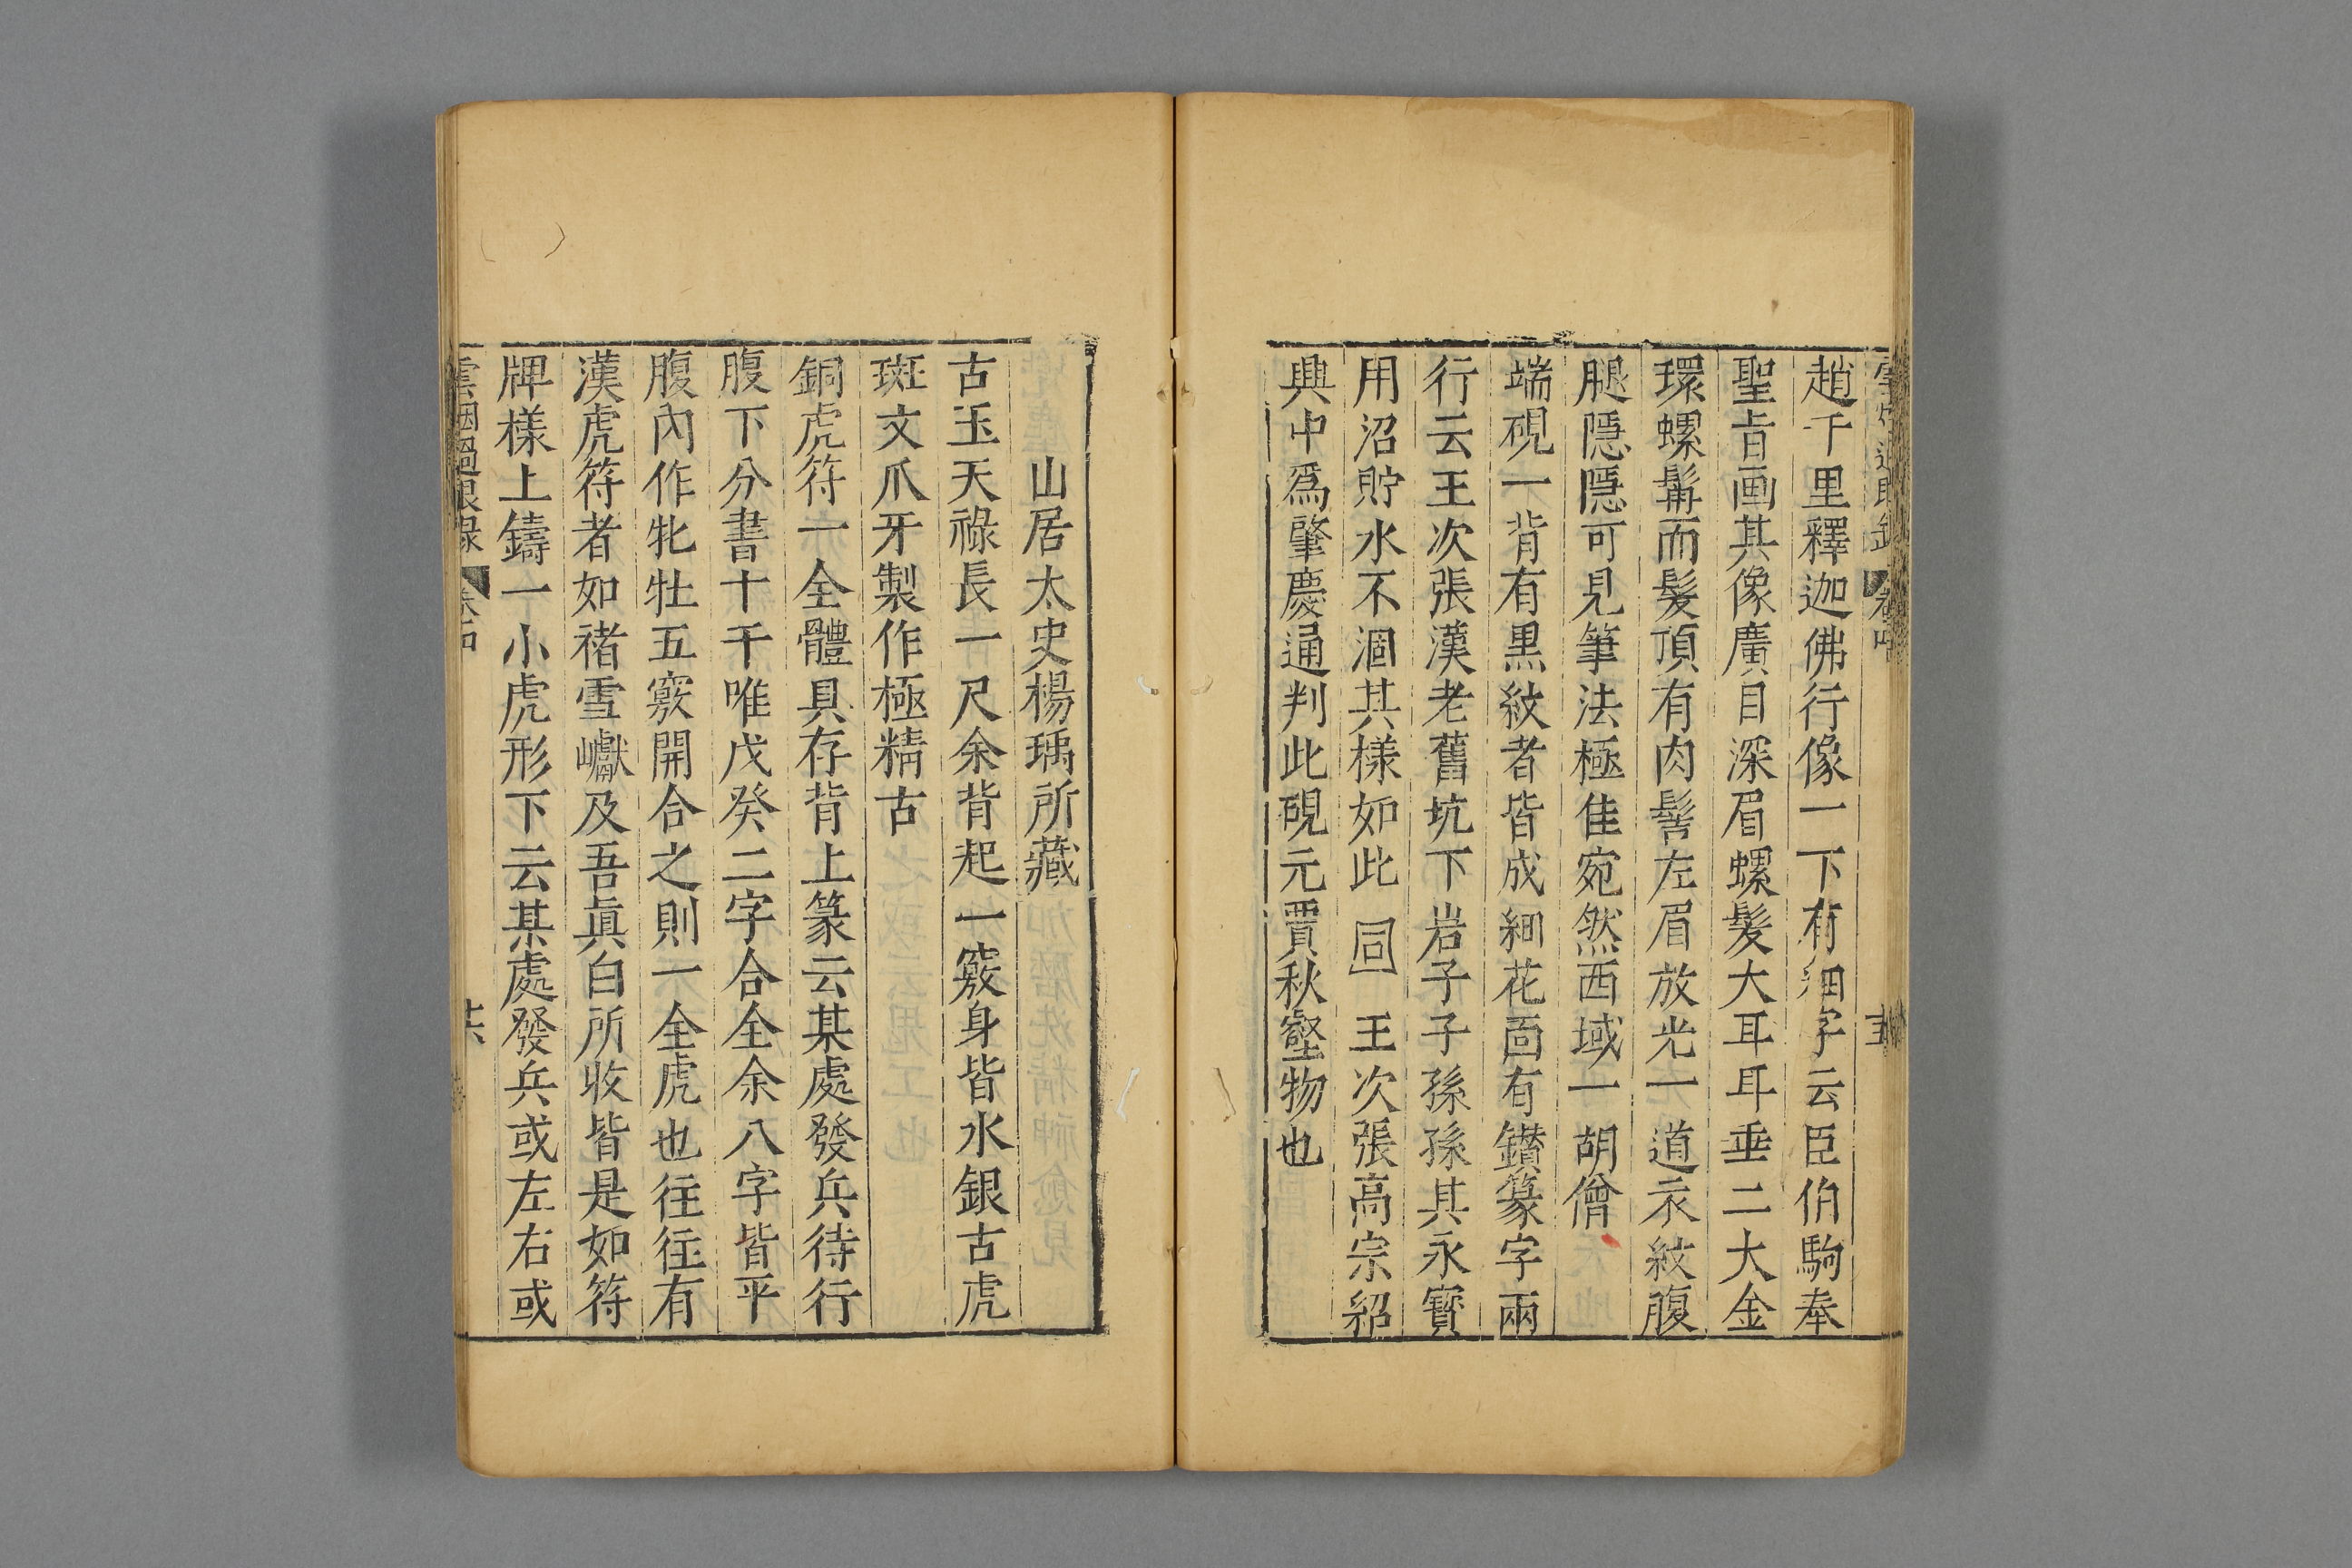 趙千里釋迦佛行像一下有細字云臣伯駒奉
聖旨画其像廣目深眉螺髮大耳耳垂二大金
環螺髯而髮頂有肉髻左眉放光一道衣紋腹
腿隱隱可見筆法極佳宛然西域一胡僧
端硯一背有黑紋者皆成細花面有鑚篆字兩
行云王次張漢老舊坑下岩子子孫孫其永寳
用沼貯水不涸其樣如此 王次張高宗紹
興中爲肇慶通判此硯元賈秋壑物也
山居太史楊瑀所藏
古玉天祿長一尺余背起一竅身皆水銀古虎
斑文爪牙製作極精古
銅虎符一全體具存背上篆云某處發兵待行
腹下分書十干唯戊癸二字合全余八字皆平
腹內作牝牡五竅開合之則一全虎也往往有
漢虎符者如褚雪巘及吾眞白所收皆是如符
牌樣上鑄一小虎形下云某處發兵或左右或
雲烟過眼錄